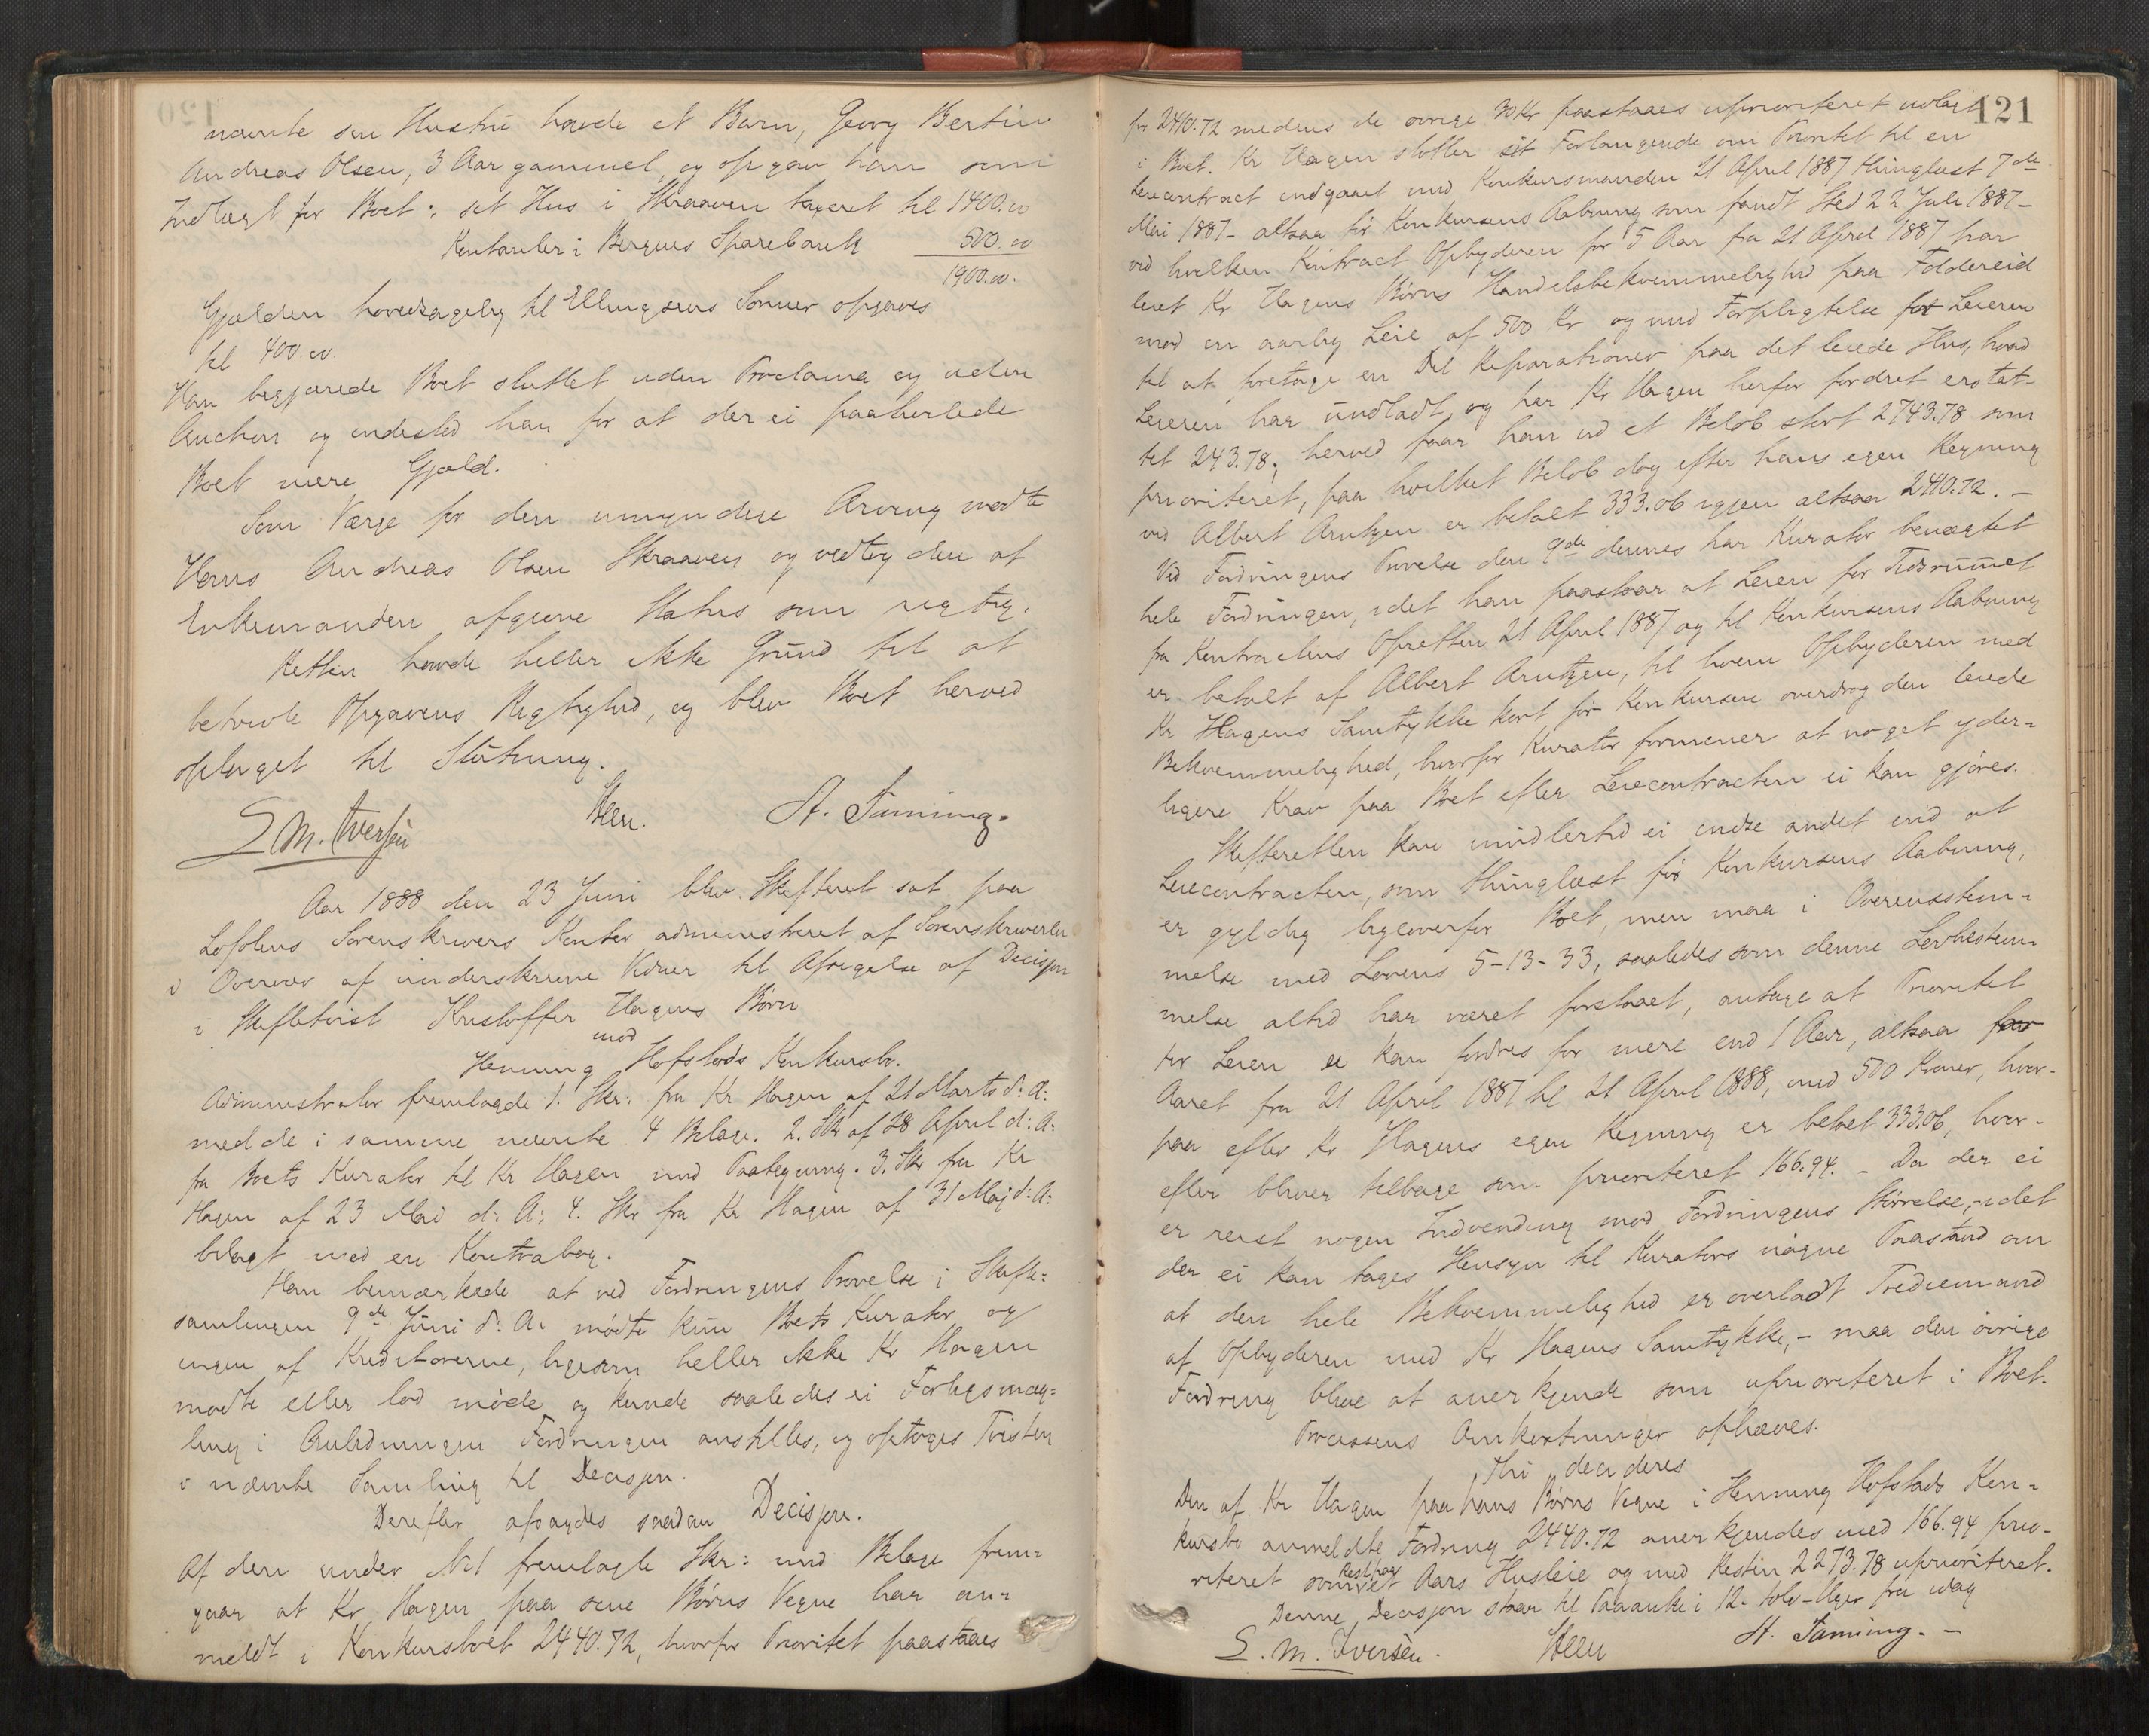 nævnte sin Hustru havde et Barn, Georg Bertin
Andreas Olsen, 3 Aar gammel, og opgav han som
Indtægt for Boet: sit Hus i Skraaven taxeret til 1400.00
Kontanter i Bergens Sparebank 500.00
1900.00.
Gjælden hovedsagelig til Ellingsens Sønner opgaves
til 400.00.
Han begjærede Boet sluttet uden Proclama og uden
Auction og indestod han for at der ei paahvilede
Boet mere Gjæld.
Som Værge for den umyndige Arving mødte
Hans Andreas Olsen Skraaven og vedtog den af
Enkemanden afgivne Status som rigtig.
Retten havde heller ikke Grund til at
betvivle Opgavens Rigtighed, og blev Boet herved
optaget til Slutning.
S M. Iversen Steen. A. Tanning.
Aar 1888 den 23 Juni blev Skifteret sat paa
Lofotens Sorenskrivers Kontor administreret af Sorenskriveren
i Overvær af underskrevne Vidner til Afsigelse af Decisjon
i Skiftetvist Kristoffer Hagens Børn
mod
Henning Hofstads Konkursbo.
Administrator fremlagde 1. Skr: fra Kr Hagen af 21 Marts d: A:
med de i samme nævnte 4 Bilage. 2. Skr af 28 April d: A:
fra Boets Kurator til Kr Hagen med Paategning. 3. Skr fra Kr
Hagen af 23 Mai d: A: 4. Skr fra Kr Hagen af 31 Maj d: A:
bilagt med en Kontrabog.
Han bemærkede at ved Fordringens Prøvelse i Skifte=
samlingen 9de Juni d: A: mødte kun Boets Kurator og
ingen af Kreditorerne, ligesom heller ikke Kr Hagen
mødte eller lod møde og kunde saaledes ei Forligsmæg=
ling i Anledningen Fordringen anstilles, og optoges Tvisten
i nævnte Samling til Decisjon.
Derefter afsagdes saadan Decisjon.
Af den under No 1 fremlagte Skr: med Bilage frem=
gaar at Kr Hagen paa sine Børns Vegne har an=
meldt i Konkursboet 2440.72, hvorfor Prioritet paastaaes
121
for 2410.72 medens de øvrige 30 Kr paastaaes uprioriteret udlagt
i Boet. Kr Hagen støtter sit Forlangende om Prioritet til en
Leiecontract indgaaet med Konkursmanden 21 April 1887 thinglæst 7de
Mai 1887 – altsaa før Konkursens Aabning som fandt Sted 22 Juli 1887 –
ved hvilken Kontract Opbyderen for 5 Aar fra 21 April 1887 har
leiet Kr Hagens Børns Handelsbekvemmelighed paa Foldereid
mod en aarlig Leie af 500 Kr og med Forpligtelse for Leieren
til at foretage en Del Reparationer paa det leiede Hus, hvad
Leieren har undladt, og har Kr Hagen herfor fordret erstat-
tet 243.78; herved faar han ud et Beløb stort 2743.78 som
prioriteret, paa hvilket Beløb dog efter hans egen Regning
ved Albert Arntzen er betalt 333.06 igjen altsaa 2410.72. –
Ved Fordringens Prøvelse den 9de dennes har Kurator benægtet
hele Fordringen, idet han paastaar at Leien for Tidsrummet
fra Kontractens Oprettelse 21 April 1887 og til Konkursens Aabning
er betalt af Albert Arntzen, til hvem Opbyderen med
Kr Hagens Samtykke kort før Konkursen overdrog den leiede
Bekvemmelighed, hvorfor Kurator formener at noget yder=
ligere Krav paa Boet efter Leiecontracten ei kan gjøres.
Skifteretten kan imidlertid ei indse andet end at
Leiecontracten, som thinglæst før Konkursens Aabning,
er gyldig ligeoverfor Boet, men maa i Overensstem=
melse med Lovens 5-13-33, saaledes som denne Lovbestem=
melse altid har været forstaaet, antage at Prioritet
for Leien ei kan fordres for mere end 1 Aar, altsaa for
Aaret fra 21 April 1887 til 21 April 1888, med 500 Kroner, hvor-
paa efter Kr Hagens egen Regning er betalt 333.06, hvor-
efter bliver tilbage som prioriteret 166.94. – Da der ei
er reist nogen Indvending mod Fordringens Størrelse, – idet
der ei kan tages Hensyn til Kurators Paastand om
at den hele Bekvemmelighed er overladt Trediemand
af Opbyderen med Kr Hagens Samtykke, – maa den øvrige
Fordring blive at anerkjende som uprioriteret i Boet.
Processens Omkostninger ophæves.
Thi decideres
Den af Kr Hagen paa hans Børns Vegne i Henning Hofstads Kon=
kursbo anmeldte Fordring 2440.72 anerkjendes med 166.94 prio-
riteret som Rest paa et Aars Husleie og med Resten 2273.78 uprioriteret.
Denne Decisjon staar til Paaanke i 12 – tolv – Uger fra idag
S. M. Iversen. Steen A. Tanning. –